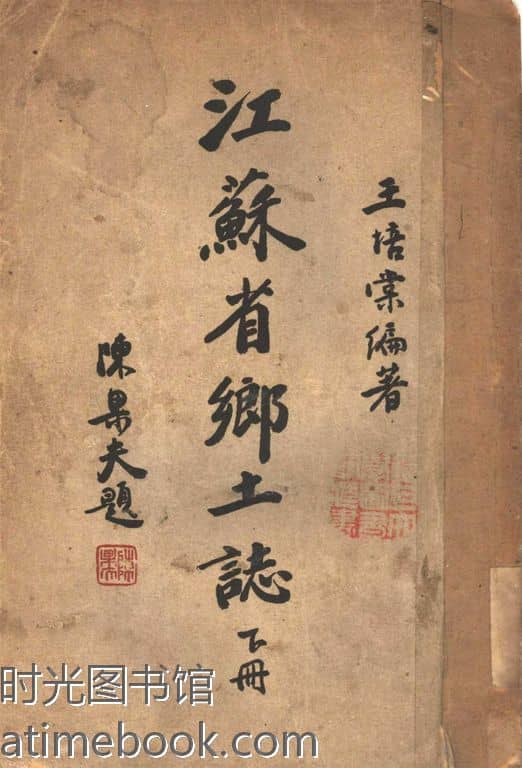 王培棠編著
江蘇省鄉土誌下冊
陳果夫題
时光图书馆
atimebook.com